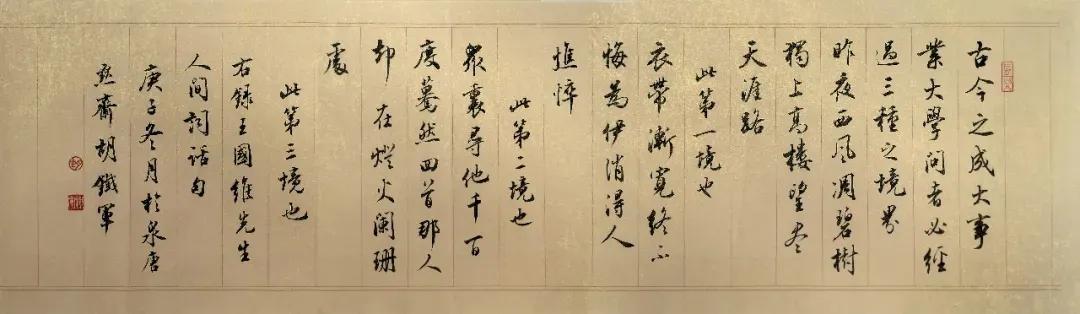 古今之成大事
業大學問者必經
過三種之境界
昨夜西風凋碧樹
獨上高樓望尽
天涯路
此第一境也
衣帶漸寬終不
悔為伊消得人
憔悴
此第二境也
眾裏尋他千百
度驀然回首那人
却在燈火闌珊
處
此第三境也
右錄王國維先生
人间詞話句
庚子冬月於泉唐
齋胡鐵軍